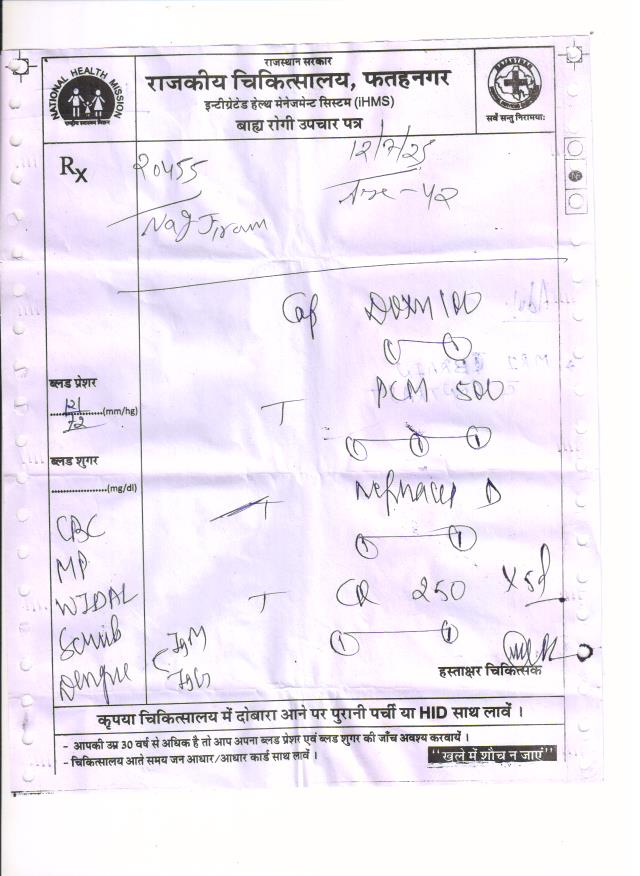 राजस्थान सरकार
राजकीय चिकित्सालय, फतहनगर
इन्टीग्रेटेड हेल्थ मेनेजमेन्ट सिस्टम (iHMS)
बाह्य रोगी उपचार पत्र
NATIONAL HEALTH MISSION
सर्वे सन्तु निरामयाः
Rx
20455
12/7/25
Age-42
Cap DOXN 100
ब्लड प्रेशर
121/72 (mm/hg)
T PCM 500
ब्लड शुगर
(mg/dl)
T D
CBC
MP
WIDAL
T 250 X5d
Scrub
Dengue
IgM
IgG
हस्ताक्षर चिकित्सक
कृपया चिकित्सालय में दोबारा आने पर पुरानी पर्ची या HID साथ लावें ।
- आपकी उम्र 30 वर्ष से अधिक है तो आप अपना ब्लड प्रेशर एवं ब्लड शुगर की जाँच अवश्य करवायें ।
- चिकित्सालय आते समय जन आधार/आधार कार्ड साथ लावें ।
"खुले में शौच न जाएं"